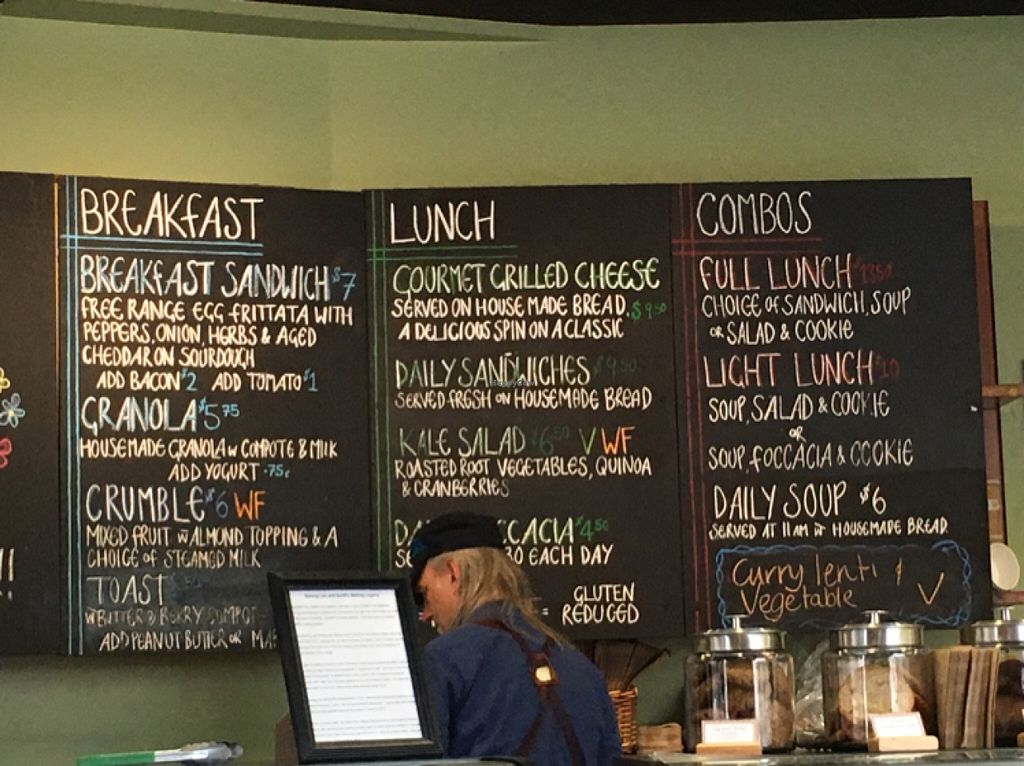 BREAKFAST
BREAKFAST SANDWICH $7
FREE RANGE EGG FRITTATA WITH
PEPPERS, ONION, HERBS & AGED
CHEDDAR ON SOURDOUGH
ADD BACON $2 ADD TOMATO $1
GRANOLA $5.75
HOUSEMADE GRANOLA w COMPOTE & MILK
ADD YOGURT .75¢
CRUMBLE $6 WF
MIXED FRUIT w ALMOND TOPPING & A
CHOICE OF STEAMED MILK
TOAST
w BUTTER & BERRY COMPOT
ADD PEANUT BUTTER OR
LUNCH
GOURMET GRILLED CHEESE
SERVED ON HOUSE MADE BREAD. $9.50
A DELICIOUS SPIN ON A CLASSIC
DAILY SANDWICHES $9.50
SERVED FRESH ON HOUSEMADE BREAD
KALE SALAD $6.50 V WF
ROASTED ROOT VEGETABLES, QUINOA
& CRANBERRIES
DA CCACIA $4.50
SE 30 EACH DAY
= GLUTEN
REDUCED
COMBOS
FULL LUNCH $13.50
CHOICE OF SANDWICH, SOUP
OR SALAD & COOKIE
LIGHT LUNCH $10
SOUP, SALAD & COOKIE
OR
SOUP, FOCCACIA & COOKIE
DAILY SOUP $6
SERVED AT 11AM w HOUSEMADE BREAD
Curry lentil &
Vegetable V
!!